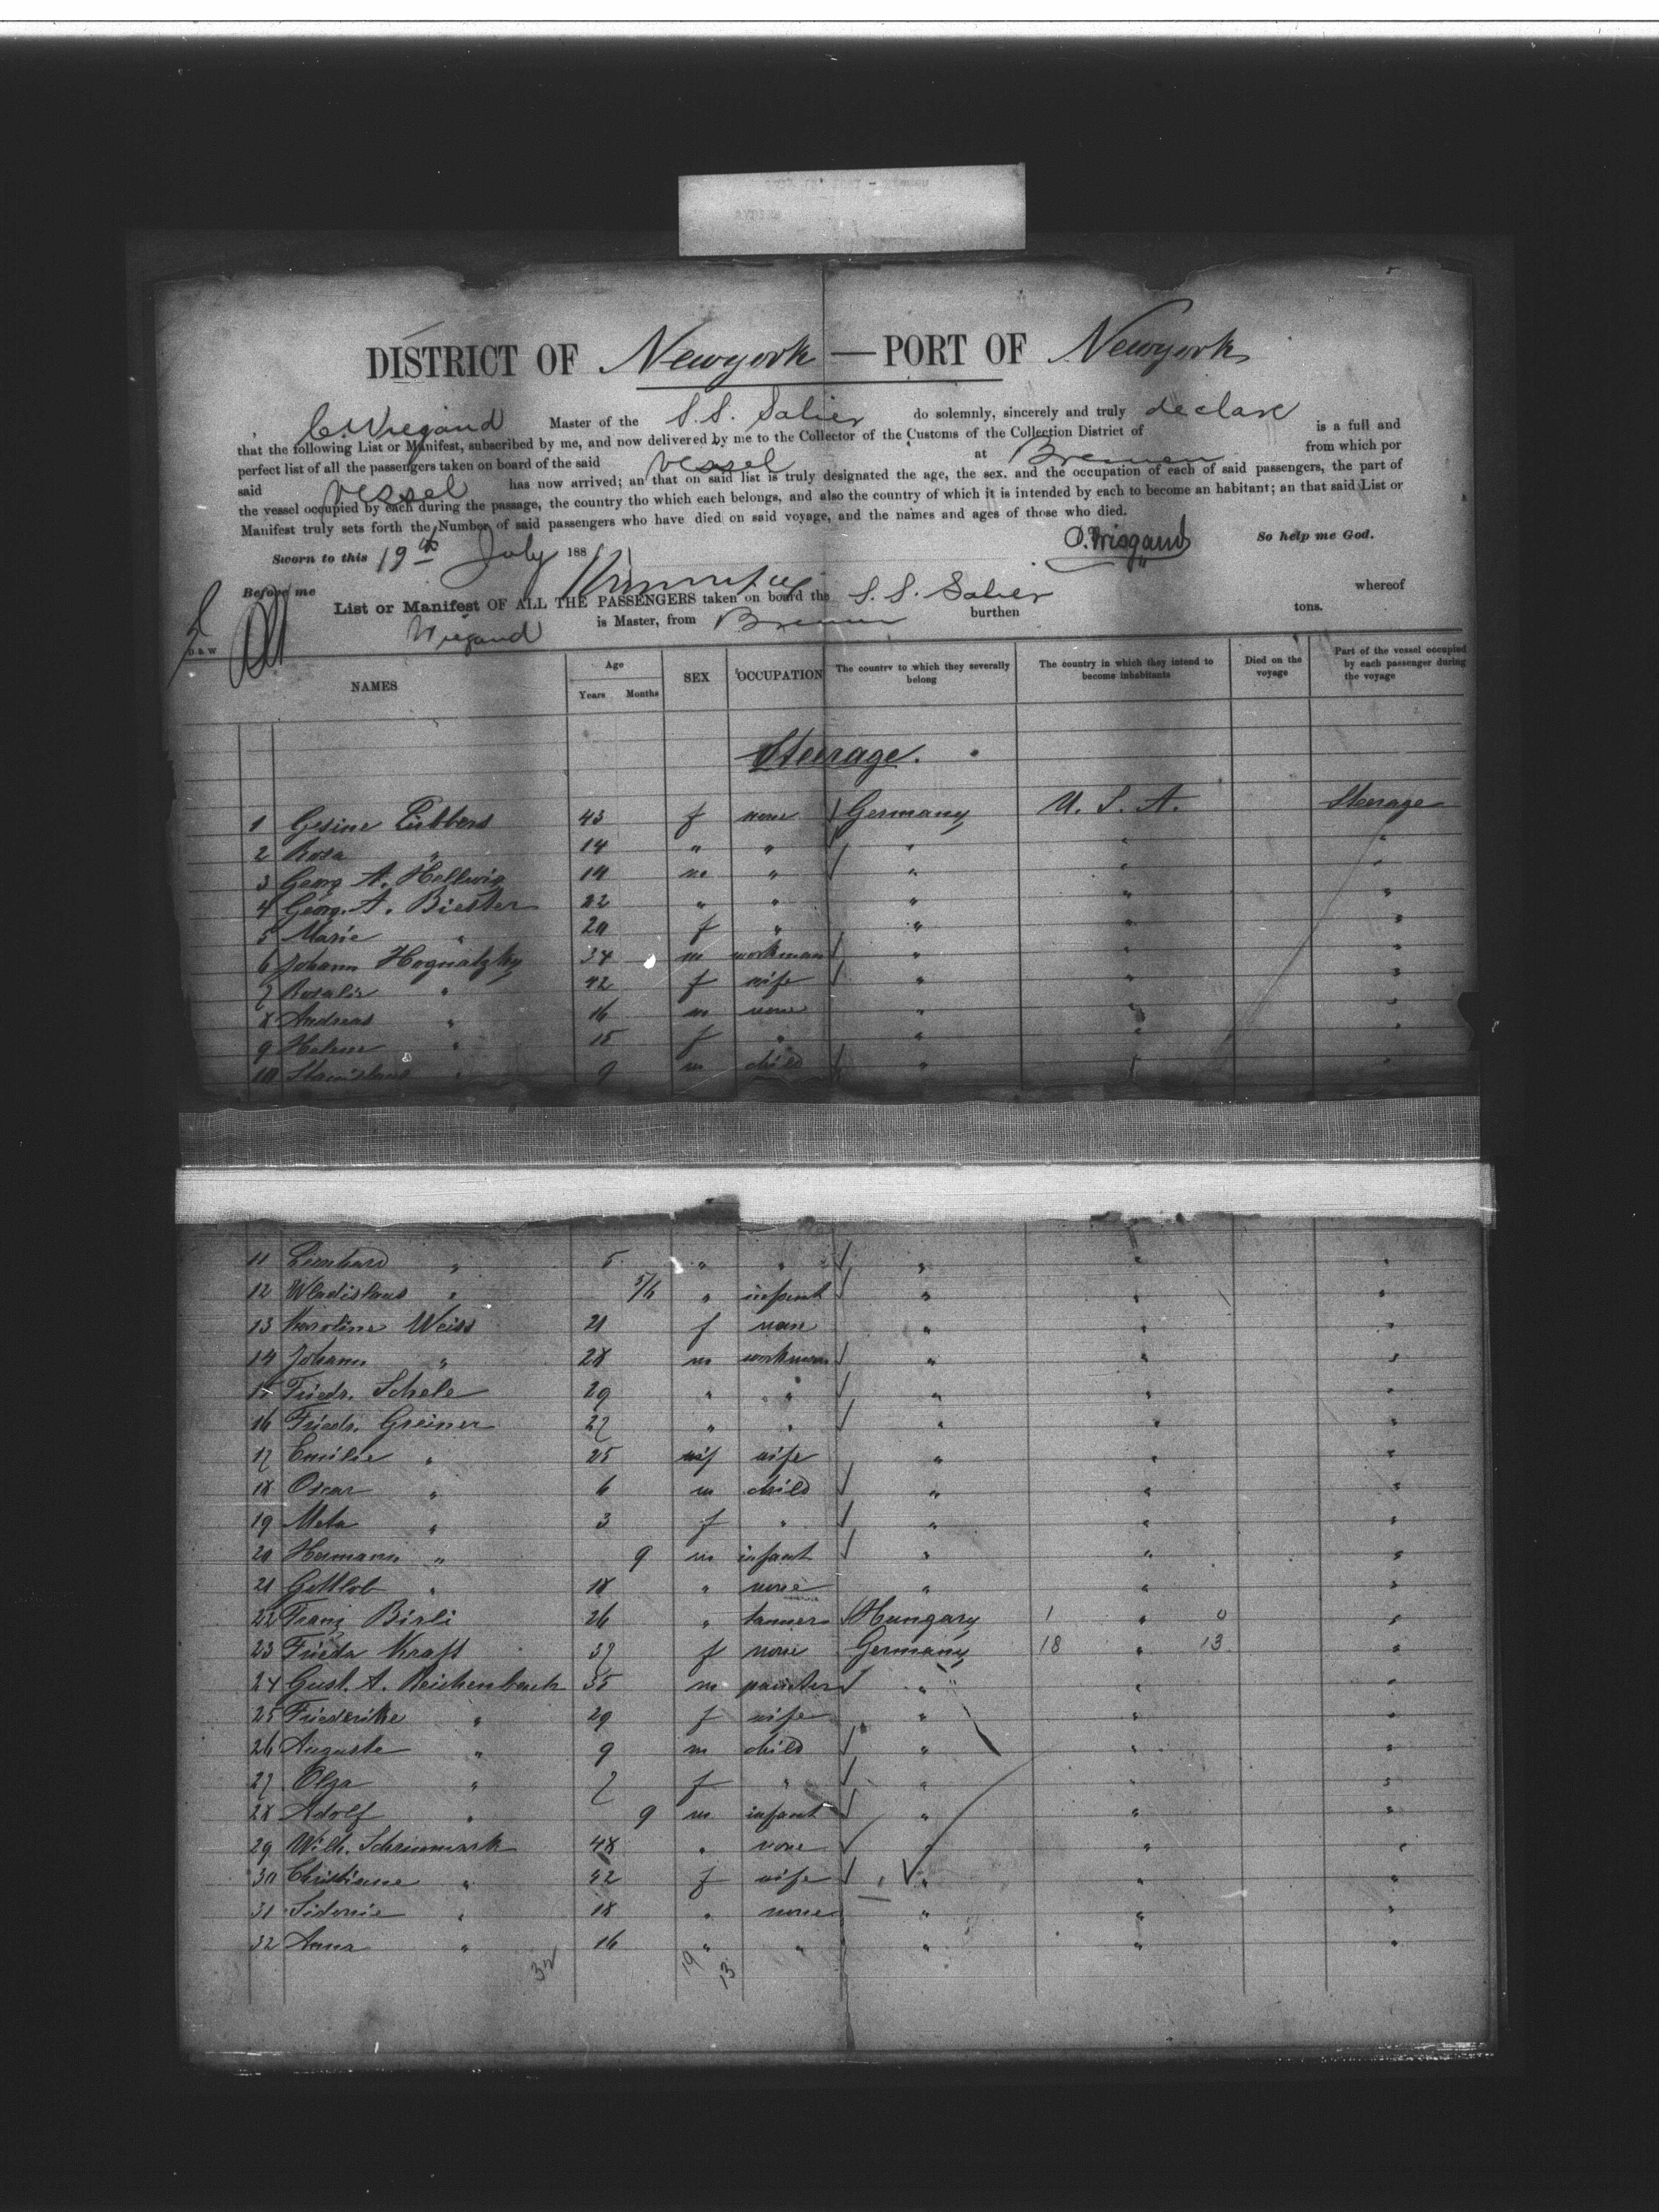 DISTRICT OF Newyork — PORT OF Newyork
C. Wiegand Master of the S.S. Salier do solemnly, sincerely and truly declare
that the following List or Manifest, subscribed by me, and now delivered by me to the Collector of the Customs of the Collection District of is a full and
perfect list of all the passengers taken on board of the said vessel at Bremen from which por
said vessel has now arrived; an that on said list is truly designated the age, the sex. and the occupation of each of said passengers, the part of
the vessel occupied by each during the passage, the country tho which each belongs, and also the country of which it is intended by each to become an habitant; an that said List or
Manifest truly sets forth the Number of said passengers who have died on said voyage, and the names and ages of those who died.
Sworn to this 19th July 188 C. Wiegand So help me God.
Before me
List or Manifest OF ALL THE PASSENGERS taken on board the S.S. Salier whereof
Wiegand is Master, from Bremen burthen tons.
D & W
NAMES Age Years Months SEX OCCUPATION The country to which they severally belong The country in which they intend to become inhabitants Died on the voyage Part of the vessel occupied by each passenger during the voyage
Steerage.
1 Gesine 43 f none Germany U. S. A. Steerage
2 Rosa " 14 " " " " "
3 Georg A. Hellwig 19 m " " " "
4 Georg. A. Biester 22 " " " " "
5 Marie " 20 f " " " "
6 Johann Hognatzky 34 m workman " " "
7 Rosalie " 42 f wife " " "
8 Andreas " 16 m none " " "
9 Helene " 15 f " " " "
10 Stanislaus " 9 m child " "
11 Lienhard " 5 " " " " "
12 Wladislaus " 5/6 " infant " " "
13 Karoline Weiss 21 f none " " "
14 Johann " 28 m workman " " "
15 Friedr. Schele 29 " " " " "
16 Friedr. Greiner 27 " " " " "
17 Emilie " 25 f wife " " "
18 Oscar " 6 m child " " "
19 Meta " 3 f " " " "
20 Hermann " 9 m infant " " "
21 Gottlob " 18 " none " " "
22 Franz Birli 26 " tanner Hungary 1 " 0 "
23 Frieda Kraft 37 f none Germany 18 " 13 "
24 Gust. A. Reichenbach 35 m painter " " "
25 Friederike " 29 f wife " " "
26 Auguste " 9 m child " " "
27 Olga " 7 f " " " "
28 Adolf " 9 m infant " " "
29 Wilh. 48 " none " " "
30 Christiane " 42 f wife " " "
31 Sidonie " 18 " none " " "
32 Anna " 16 " " " " "
32 19 13